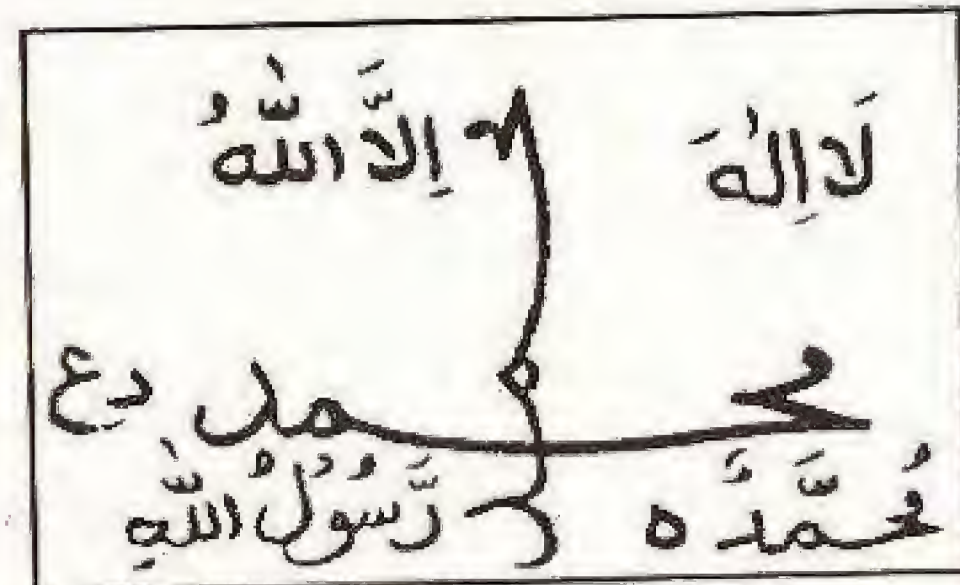 لَا إِلٰهَ إِلَّا اللّٰهُ
محمد
محمد دع
مُحَمَّدٌ ہ رَّسُوْلُ اللّٰهِ